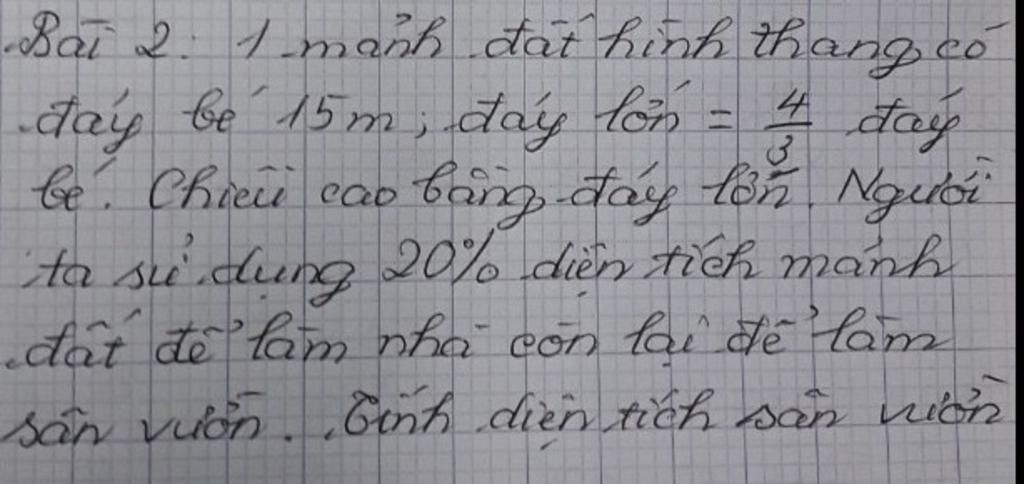 Bài 2: 1 mảnh đất hình thang có
đáy bé 15m; đáy lớn = 4/3 đáy
bé. Chiều cao bằng đáy lớn. Người
ta sử dụng 20% diện tích mảnh
đất để làm nhà còn lại để làm
sân vườn. Tính diện tích sân vườn